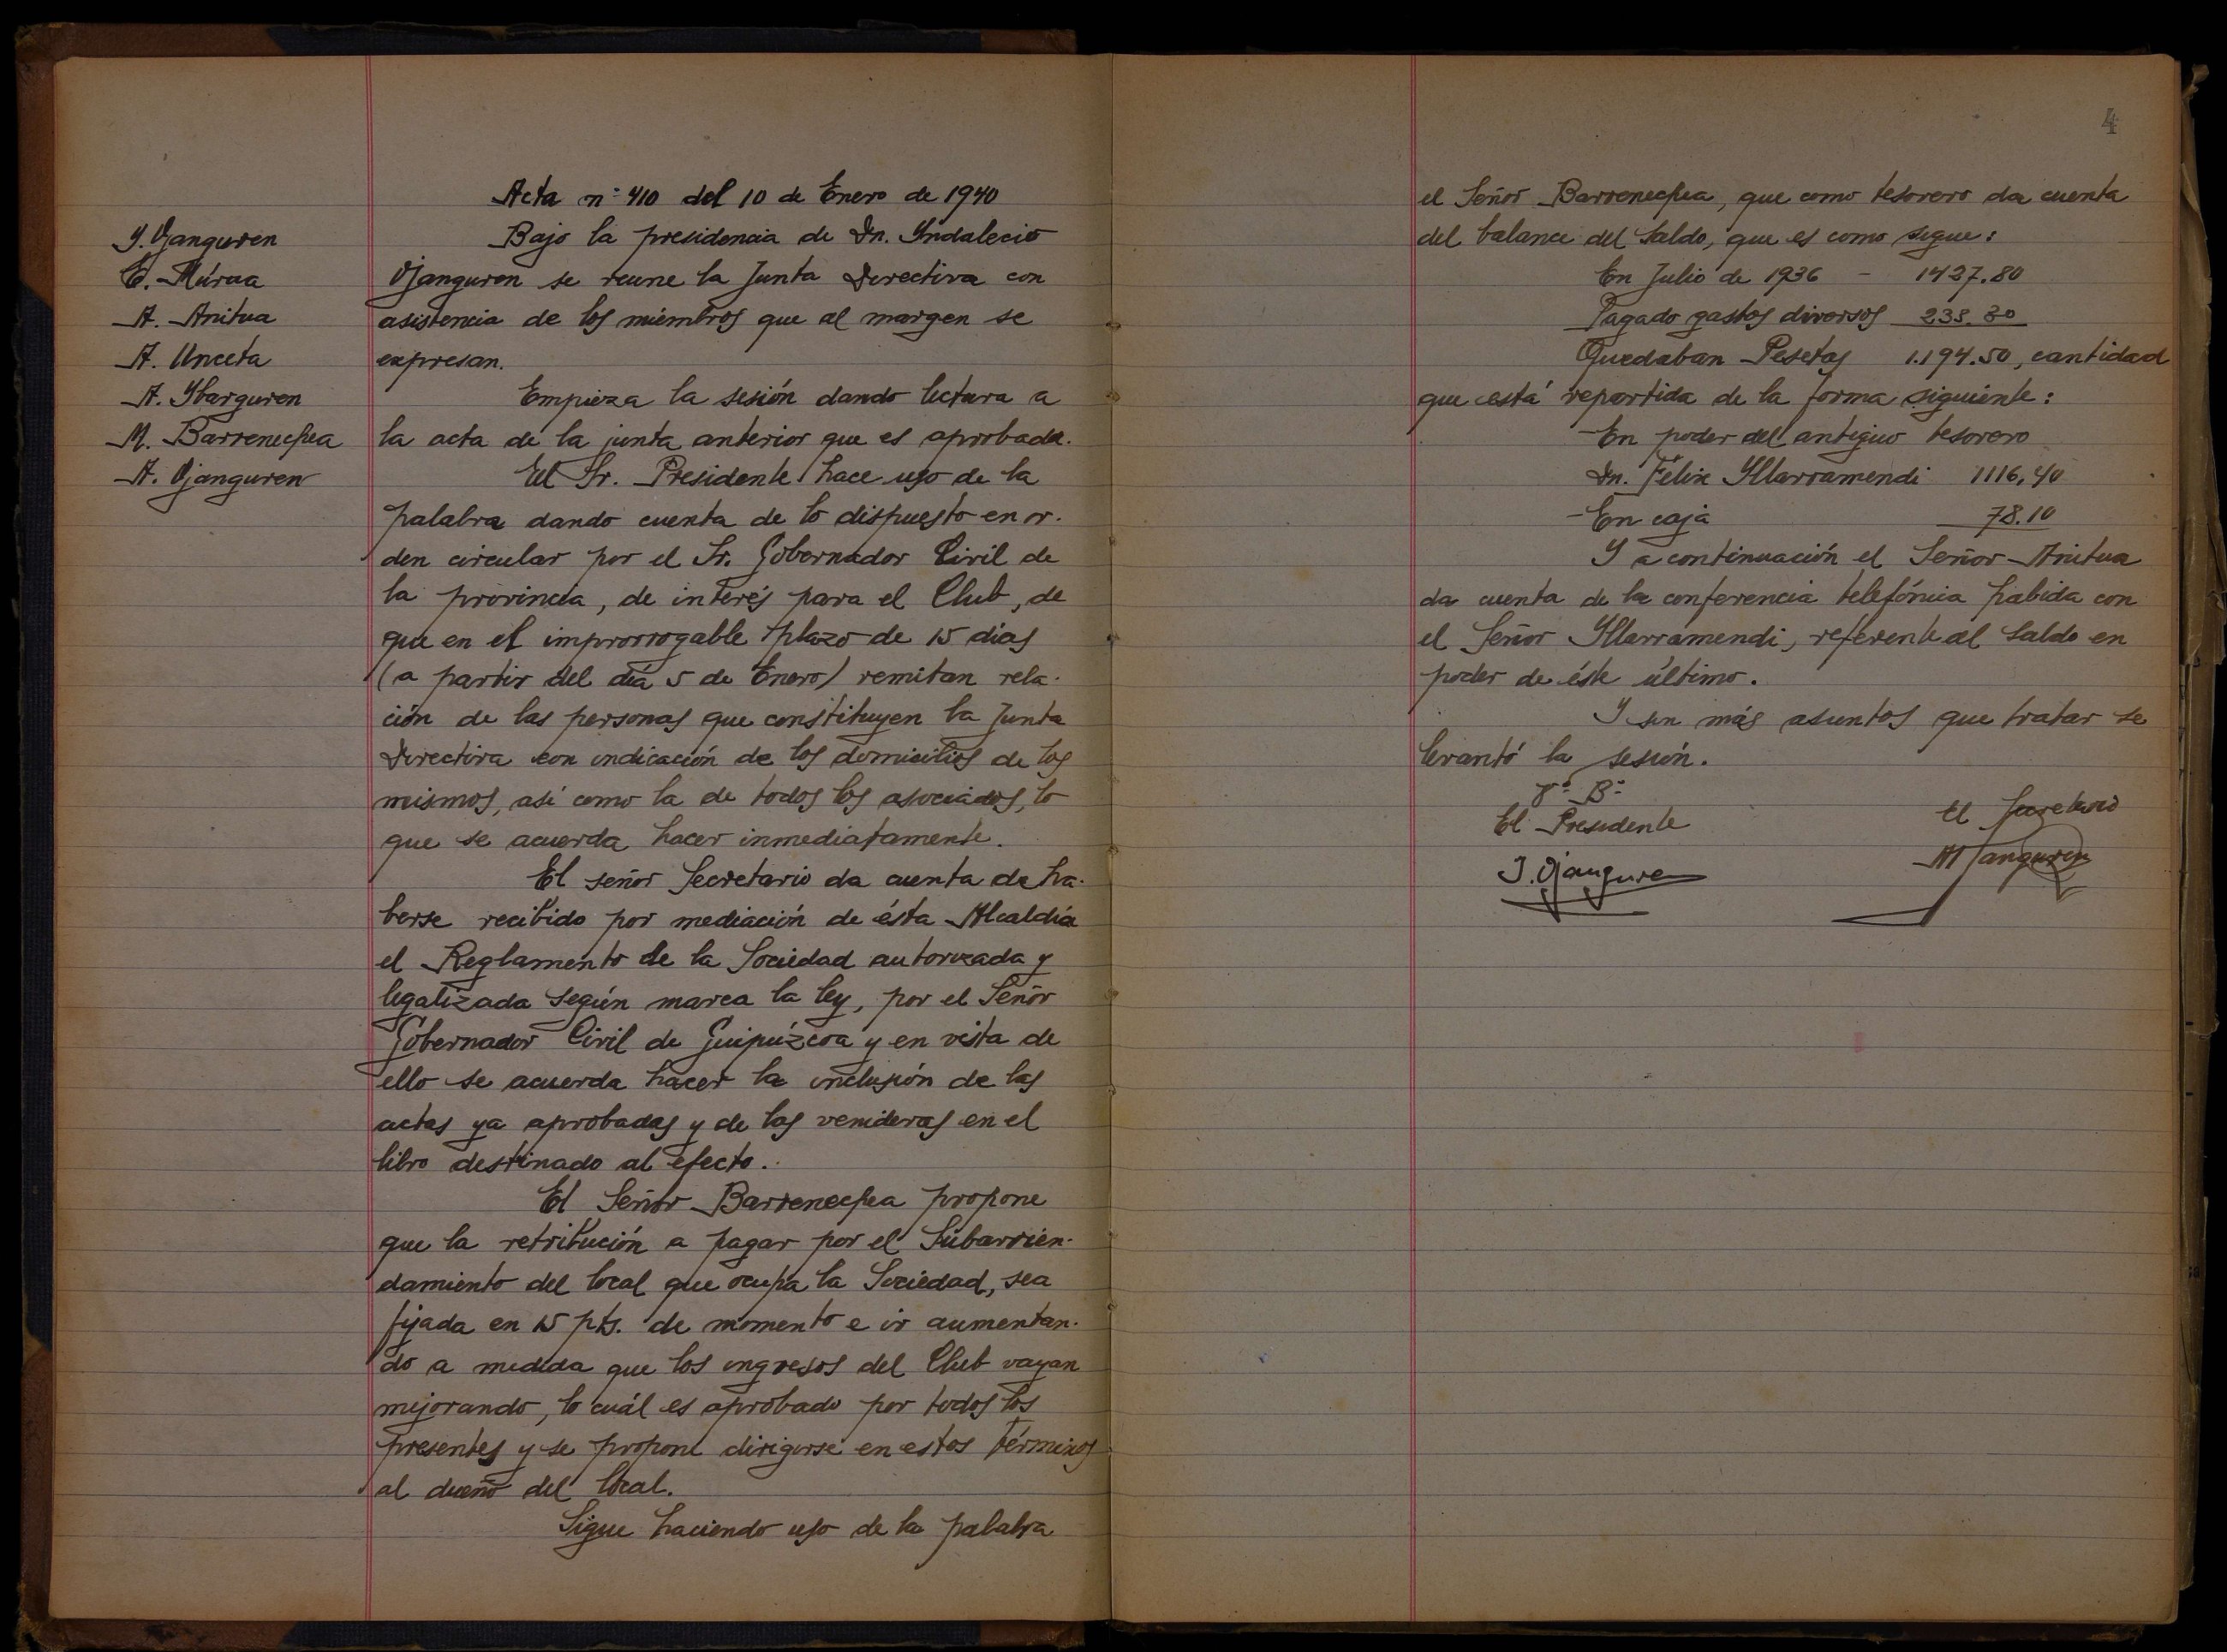 Acta nº 410 del 10 de Enero de 1940
Y. Ojanguren
E. Múraa
A. Anitua
A. Unceta
A. Ybarguren
M. Barrenechea
A. Ojanguren
Bajo la presidencia de Dn. Yndalecio
Ojanguren se reune la Junta Directiva con
asistencia de los miembros que al margen se
expresan.
Empieza la sesión dando lectura a
la acta de la junta anterior que es aprobada.
El Sr. Presidente hace uso de la
palabra dando cuenta de lo dispuesto en or-
den circular por el Sr. Gobernador Civil de
la provincia, de interés para el Club, de
que en el improrrogable plazo de 15 dias
(a partir del día 5 de Enero) remitan rela-
ción de las personas que constituyen la Junta
Directiva con indicación de los domicilios de los
mismos, así como la de todos los asociados, lo
que se acuerda hacer inmediatamente.
El señor Secretario da cuenta de ha-
berse recibido por mediación de ésta Alcaldía
el Reglamento de la Sociedad autorizada y
legalizada según marca la ley, por el Señor
Gobernador Civil de Guipúzcoa y en vista de
ello se acuerda hacer la inclusión de las
actas ya aprobadas y de las venideras en el
libro destinado al efecto.
El Señor Barrenechea propone
que la retribución a pagar por el Subarrien-
damiento del local que ocupa la Sociedad, sea
fijada en 15 pts. de momento e ir aumentan-
do a medida que los ingresos del Club vayan
mejorando, lo cuál es aprobado por todos los
presentes y se propone dirigirse en estos términos
al dueño del local.
Sigue haciendo uso de la palabra
4
el Señor Barrenechea, que como tesorero da cuenta
del balance del saldo, que es como sigue:
En Julio de 1936 - 1427.80
Pagado gastos diversos 233.30
Quedaban Pesetas 1.194.50, cantidad
que está repartida de la forma siguiente:
En poder del antiguo tesorero
Dn. Félix Yllarramendi 1116,40
En caja 78.10
Y a continuación el Señor Anitua
da cuenta de la conferencia telefónica habida con
el Señor Yllarramendi, referente al saldo en
poder de éste último.
Y sin más asuntos que tratar se
levantó la sesión.
Vº Bº
El Presidente
El Secretario
J. Ojanguren